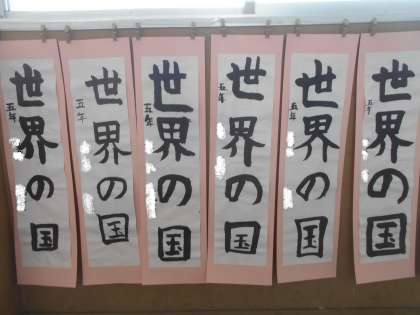 世界の国
五年
世界の国
五年
世界の国
五年
世界の国
五年
世界の国
五年
世界の国
五年